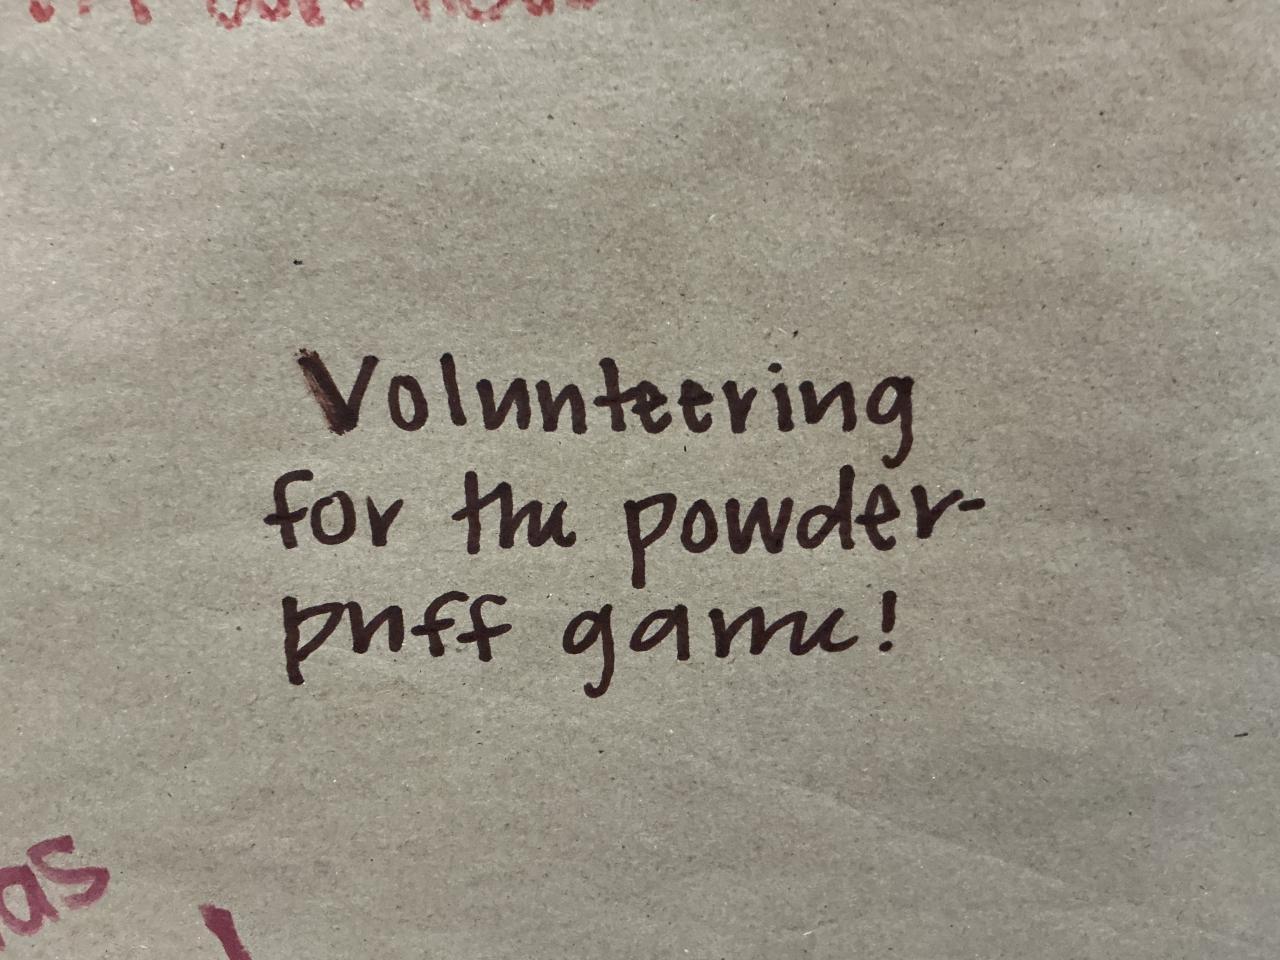 Volunteering
for the powder-
puff game!
as